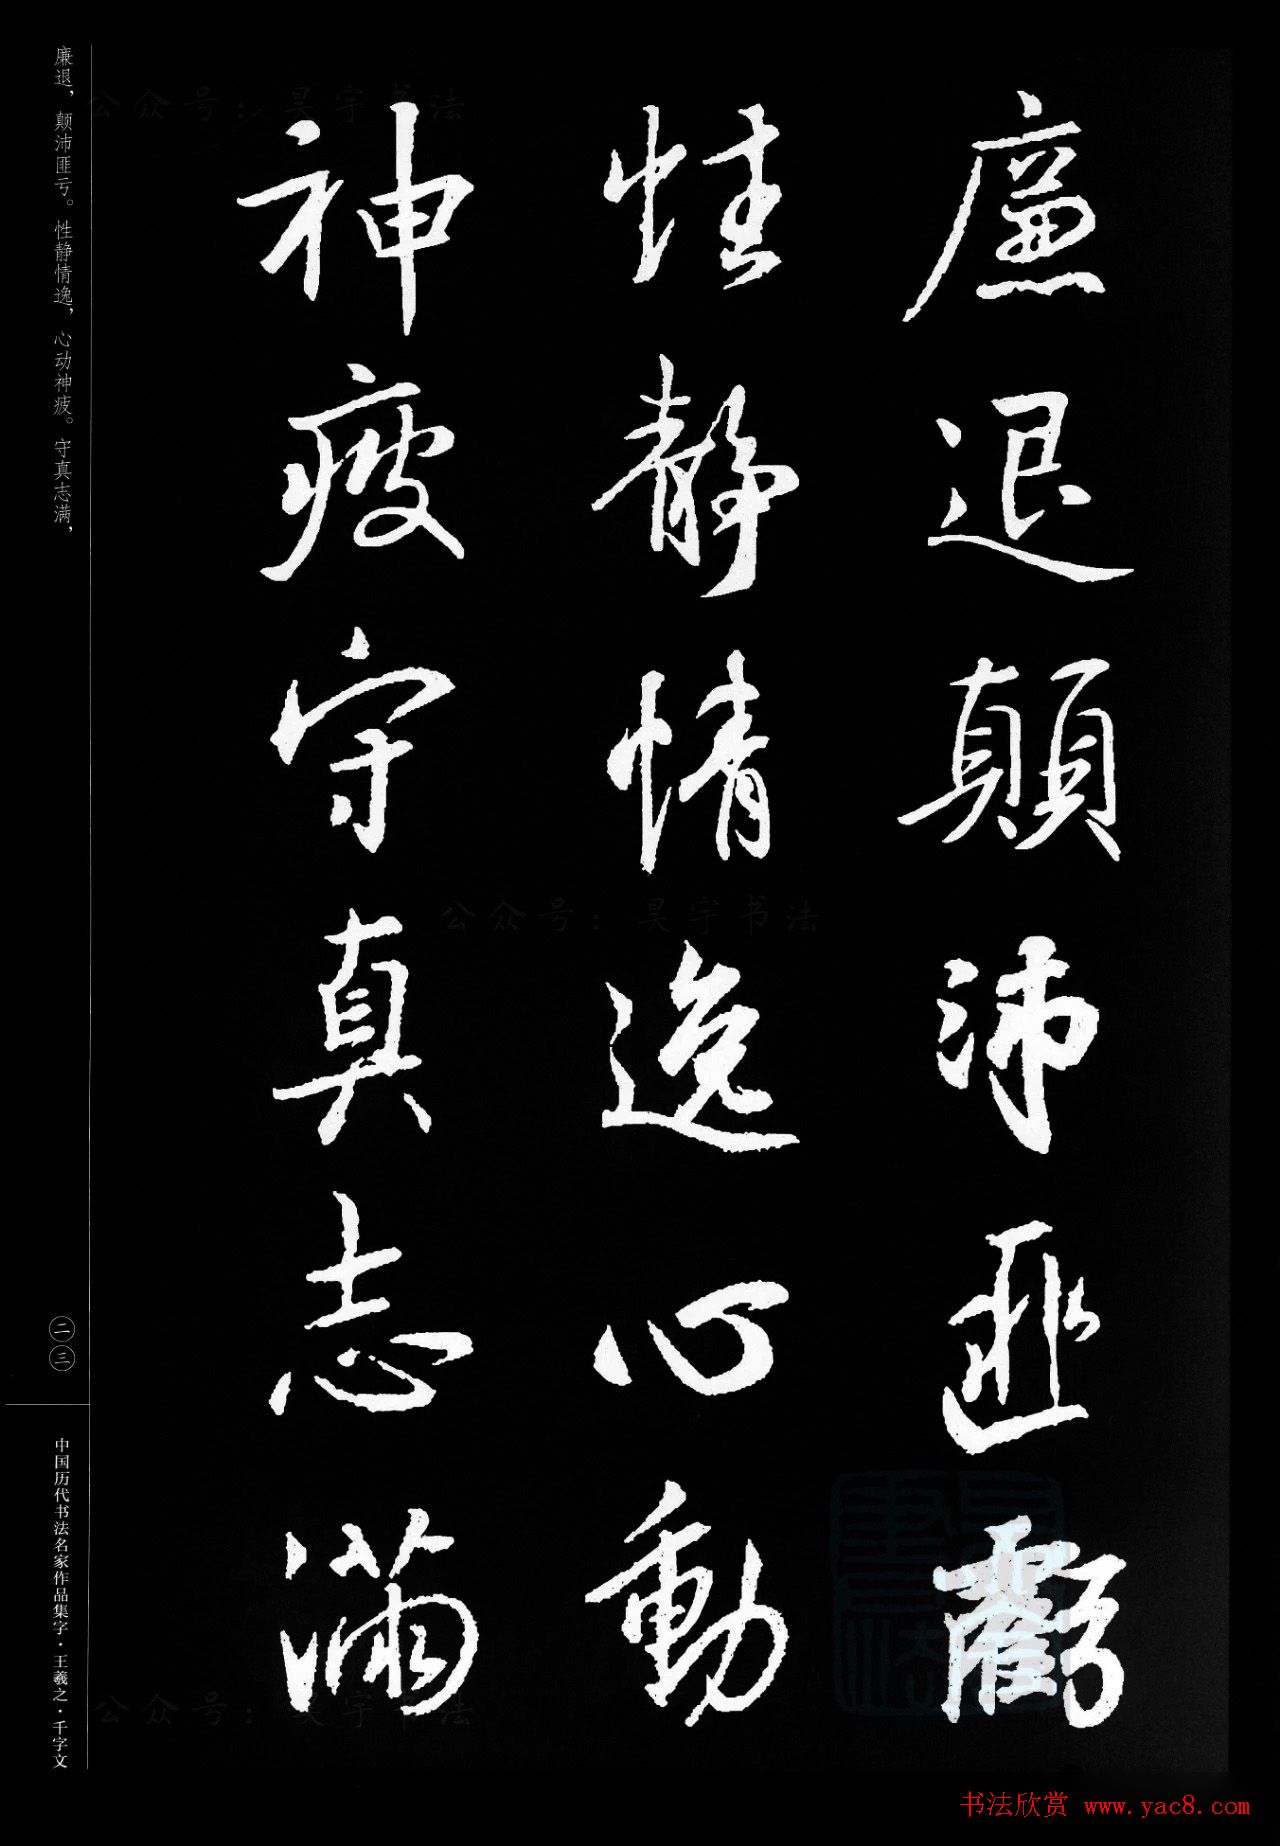 廉退顛沛匪虧
性靜情逸心動
神疲守真志滿
廉退，颠沛匪亏。性静情逸，心动神疲。守真志满，
二三
中国历代书法名家作品集字·王羲之·千字文
公众号：昊宇书法
公众号：昊宇书法
公众号：昊宇书法
书法欣赏 www.yac8.com